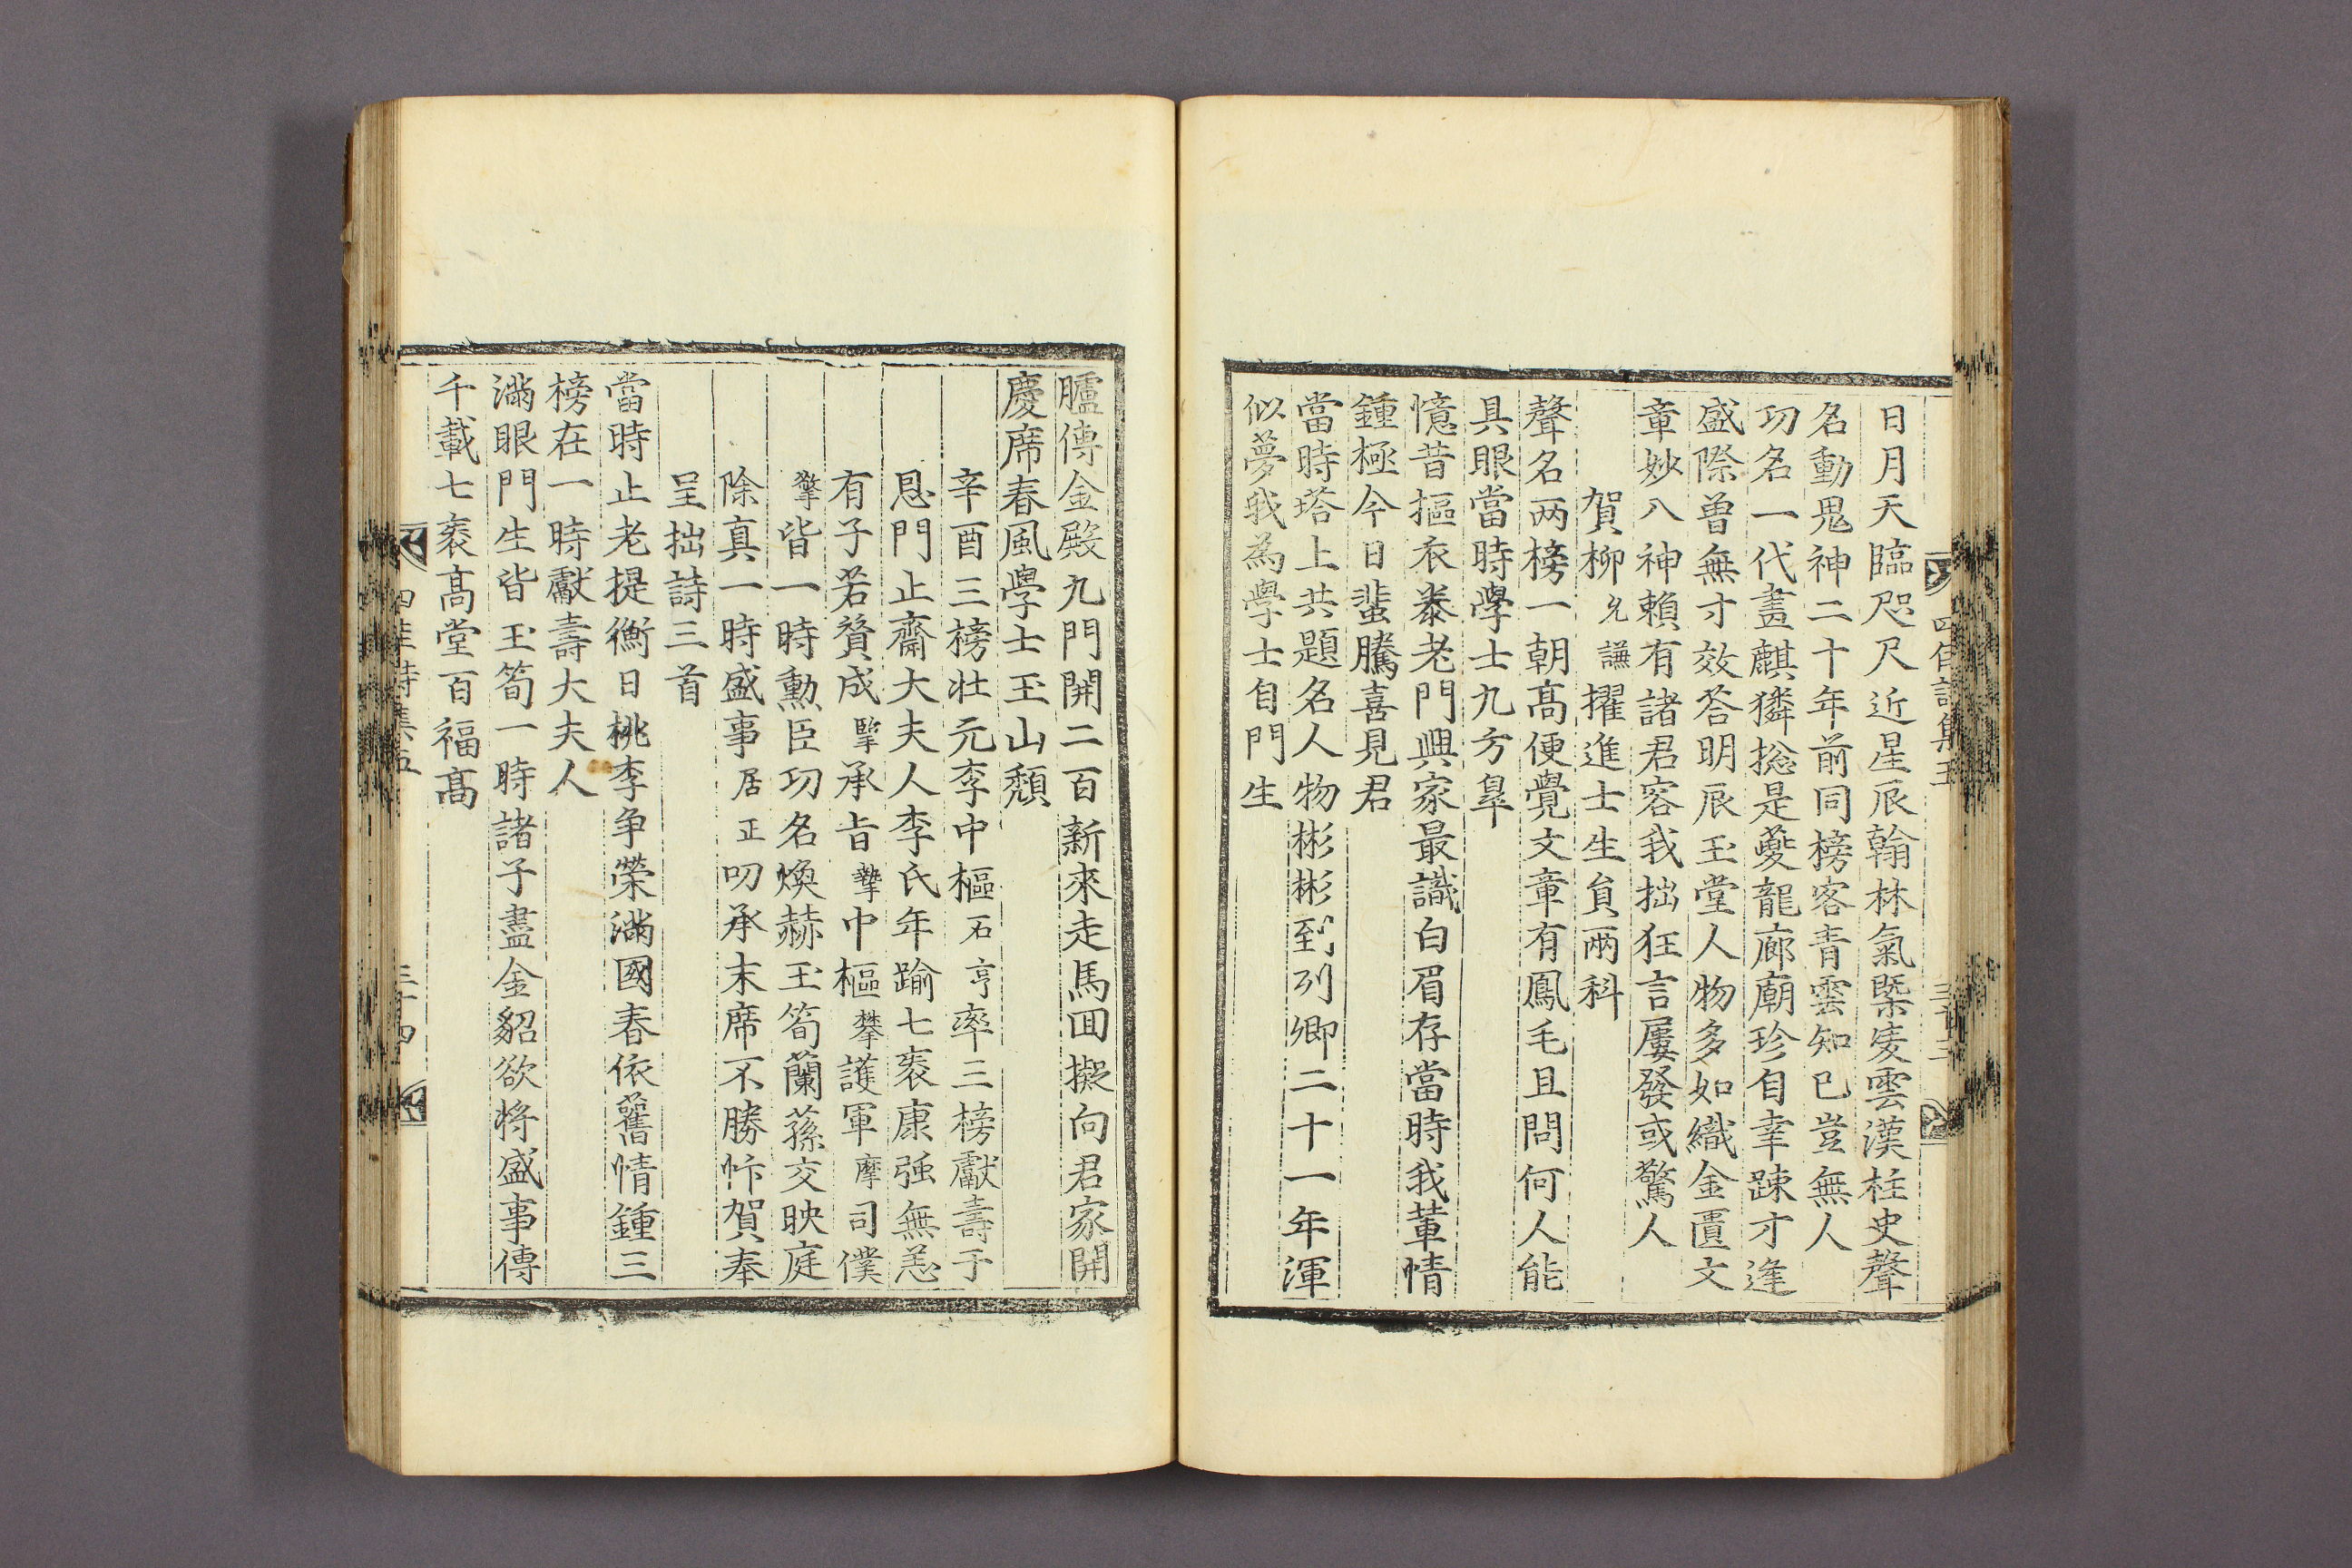 日月天臨咫尺近星辰翰林氣槩凌雲漢柱史聲
名動鬼神二十年前同榜客青雲知已豈無人
功名一代畫麒獜捴是夔龍廊廟珍自幸踈才逢
盛際曽無寸效荅明辰玉堂人物多如織金匱文
章妙八神賴有諸君容我拙狂言屢發或驚人
賀柳允謙擢進士生負兩科
聲名兩榜一朝髙便覺文章有鳳毛且問何人能
具眼當時學士九方臯
憶昔摳衣叅老門興家最識白眉存當時我輩情
鍾極今日蜚騰喜見君
當時塔上共題名人物彬彬到列卿二十一年渾
似夢我為學士自門生
臚傳金殿九門開二百新來走馬回擬向君家開
慶席春風學士玉山頽
辛酉三榜壯元李中樞石亨率三榜獻壽于
恩門止齋大夫人李氏年踰七袠康强無恙
有子若贇成擥承旨擎中樞攀護軍摩司僕
擎皆一時勳臣功名煥赫玉筍蘭蓀交映庭
除真一時盛事居正叨承末席不勝忭賀奉
呈拙詩三首
當時止老提衡日桃李争榮滿國春依舊情鍾三
榜在一時獻壽大夫人
滿眼門生皆玉筍一時諸子盡金貂欲将盛事傳
千載七袠髙堂百福髙
四佳詩集五
三十四